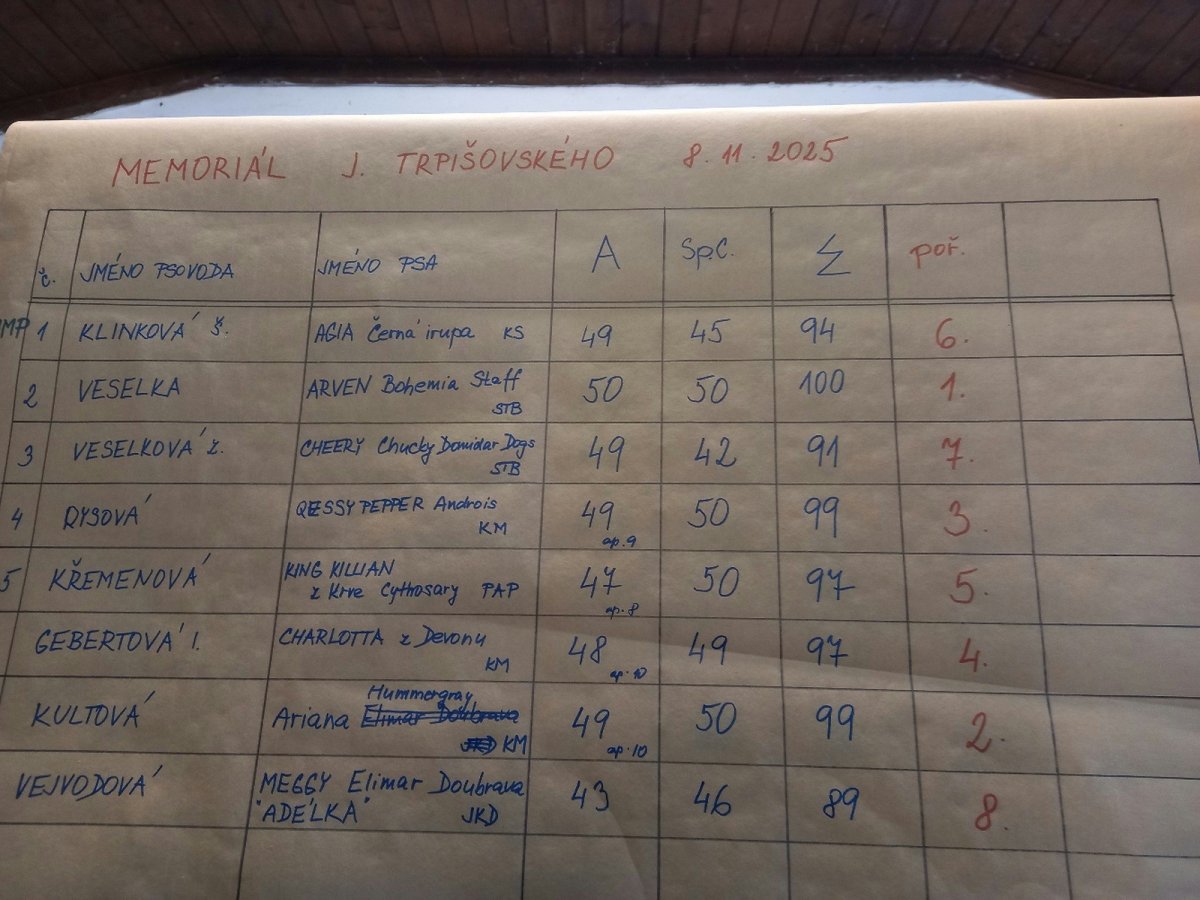 MEMORIÁL J. TRPIŠOVSKÉHO 8.11.2025
č. JMÉNO PSOVODA JMÉNO PSA A Sp.C. Σ poř.
MP 1 KLINKOVÁ Š. AGIA Černá irupa KS 49 45 94 6.
2 VESELKA ARVEN Bohemia Staff 50 50 100 1.
STB
3 VESELKOVÁ Z. CHEERY Chucky Domidar Dogs 49 42 91 7.
STB
4 RYSOVÁ QESSY PEPPER Androis 49 50 99 3.
KM op.9
5 KŘEMENOVÁ KING KILLIAN 47 50 97 5.
z Krve Cythosary PAP op.8
GEBERTOVÁ I. CHARLOTTA z Devonu 48 49 97 4.
KM op.10
Hummergray
KULTOVÁ Ariana Elimar Doubrava 49 50 99 2.
KM op.10
VEJVODOVÁ MEGGY Elimar Doubrava 43 46 89 8.
"ADÉLKA" JKD